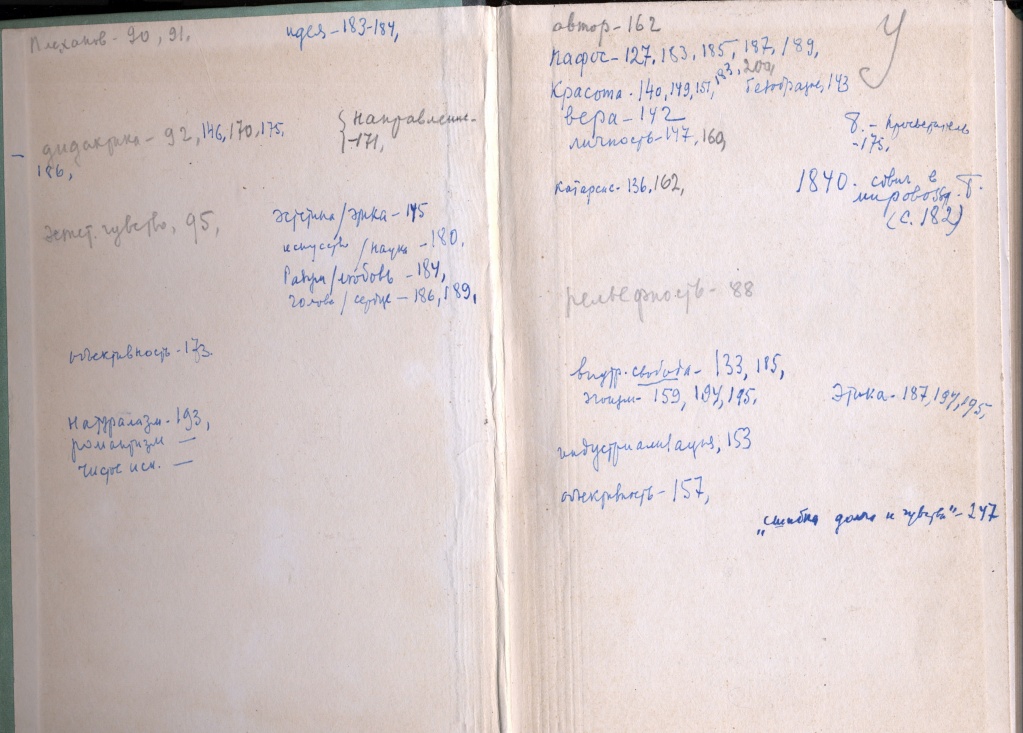 Плеханов - 90, 91.
идея - 183-184,
дидактика - 92, 146, 170, 175,
186,
{ направление -
- 171,
Эстет. чувство, 95,
Эстетика / Этика - 145
искусство / наука - 180.
Разум / любовь - 184,
голова / сердце - 186, 189,
объективность - 173.
Натурализм - 193,
романтизм —
чистое иск. —
У
автор - 162
Пафос - 127, 183, 185, 187, 189,
Красота - 140, 149, 151, 183, 200,
143
вера - 142
личность - 147, 160,
Б. - Просветитель
- 175,
Катарсис - 136, 162,
1840. сдвиг в
мировозр. Б.
(с. 182)
рельефность - 88
внутр. свобода - 133, 185,
эгоизм - 159, 194, 195,
Этика - 187, 194, 195,
индустриализация, 153
объективность - 157,
„сшибка долга и чувства" - 247